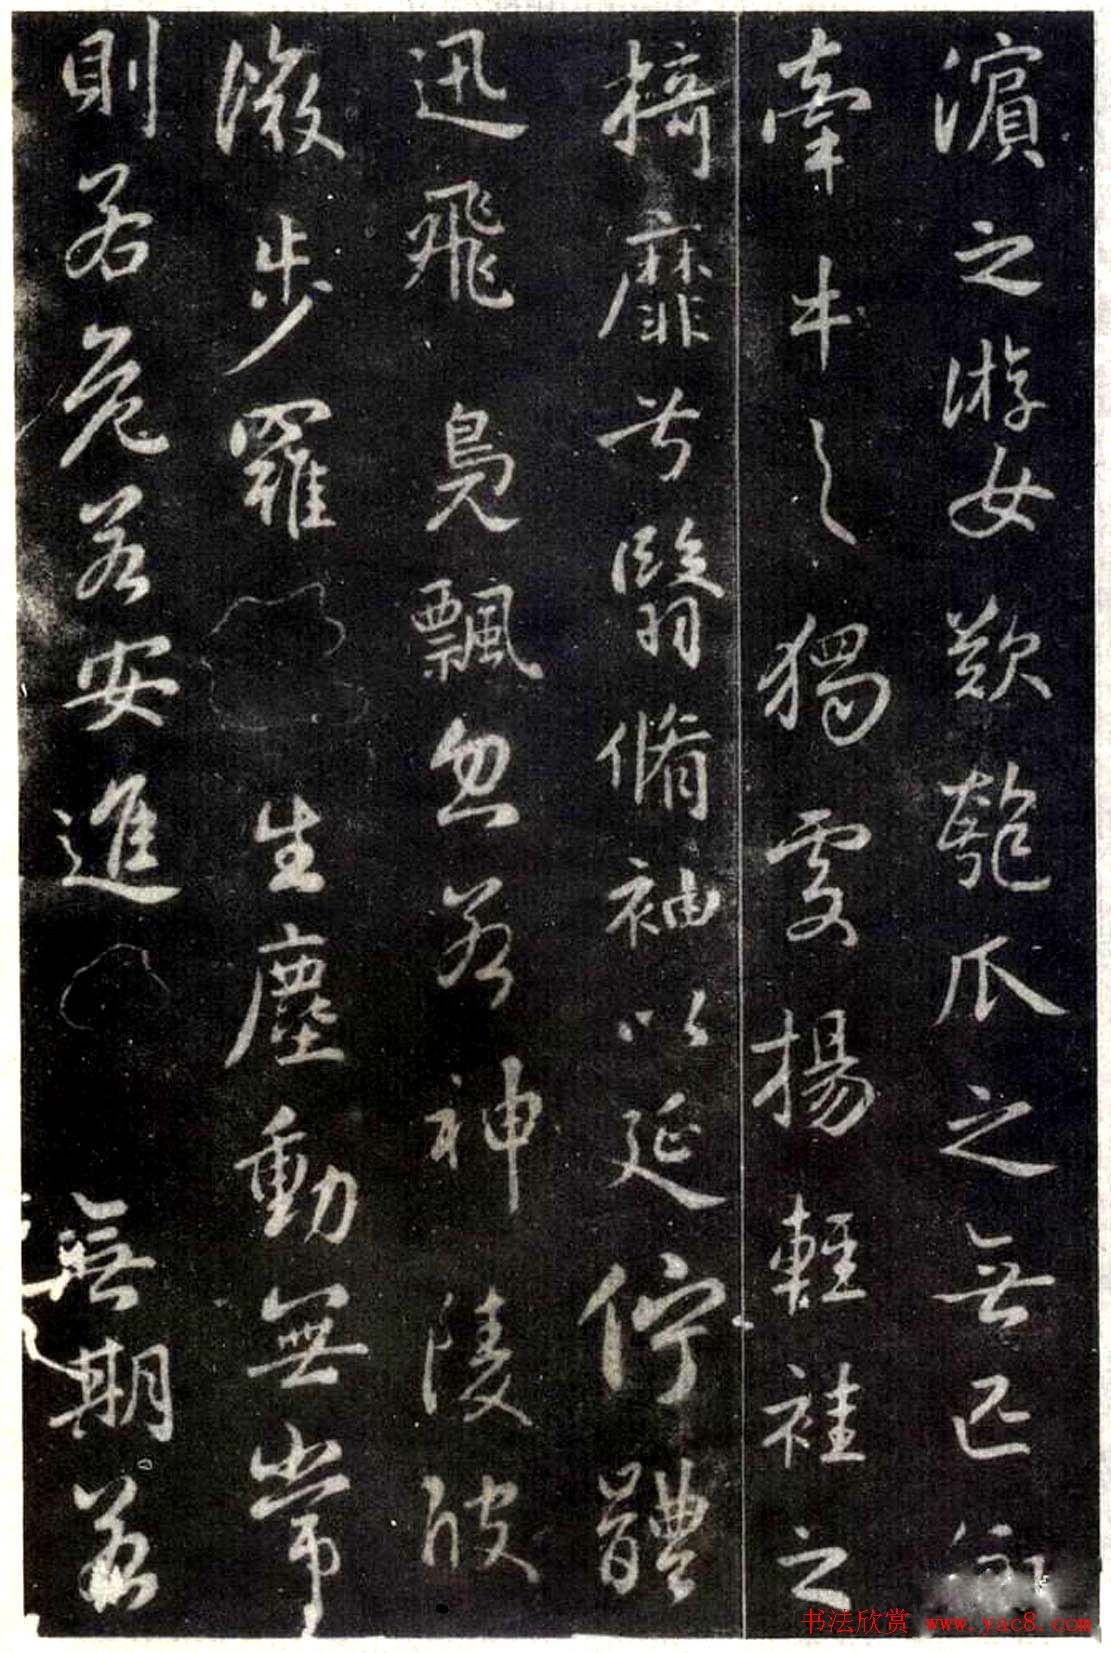 濵之游女歎匏瓜之無匹
牽牛之獨處揚輕袿之
掎靡兮翳脩袖以延佇體
迅飛鳧飄忽若神陵波
微步羅生塵動無常
則若危若安進無期若
书法欣赏 www.yac8.com